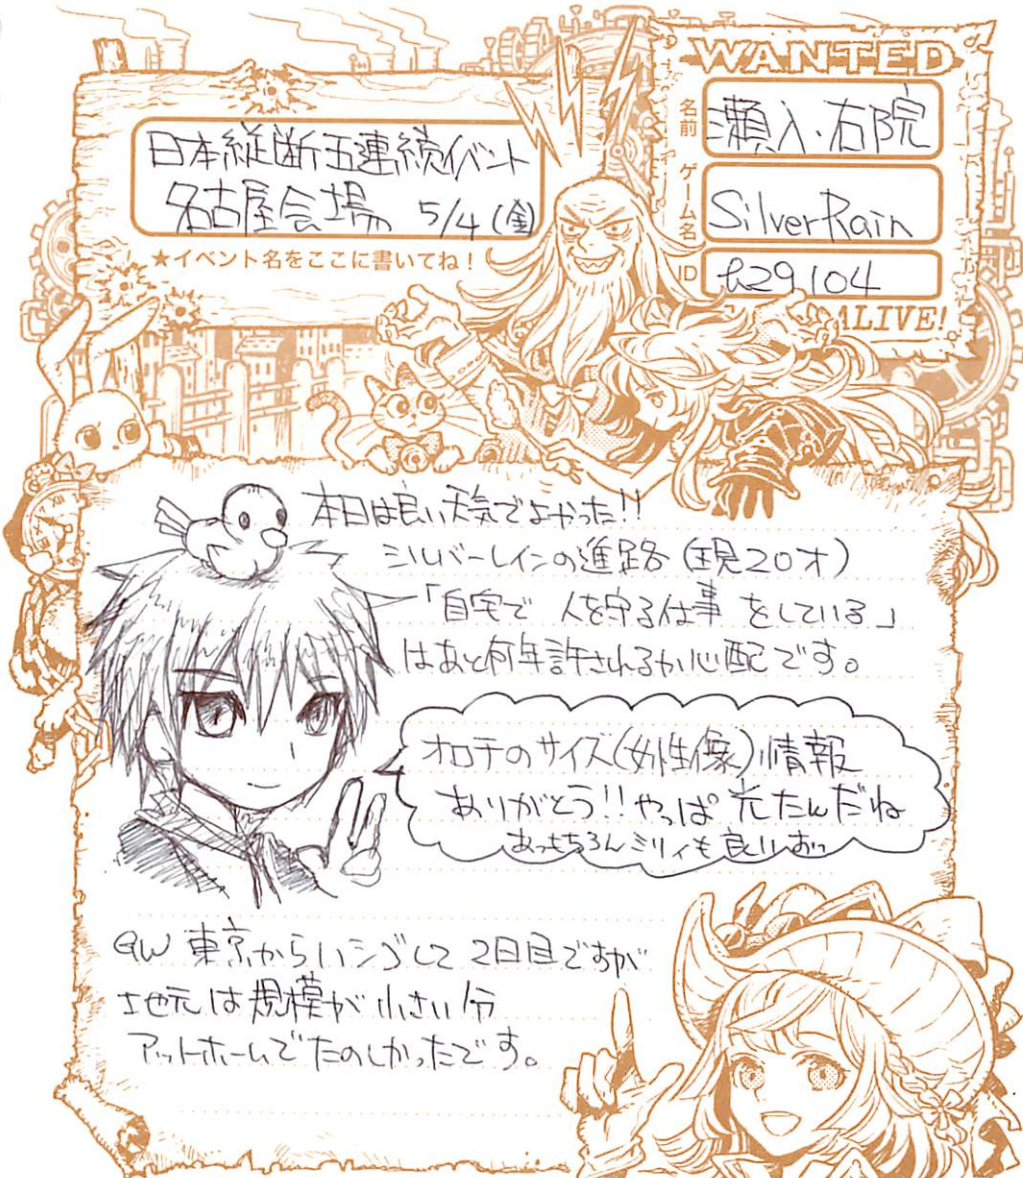 WANTED
日本縦断五連続イベント
名古屋会場 5/4(金)
★イベント名をここに書いてね!
名前
瀬入・右院
ゲーム名
SilverRain
ID
h29104
ALIVE!
本日は良い天気でよかった!!
シルバーレインの進路(現20才)
「自宅で 人を守る仕事 をしている」
はあと何年許されるか心配です。
オロチのサイズ(女性像)情報
ありがとう!!やっぱ 光たんだね
あっもちろんミリィも良いおっ
GW 東京からハシゴして 2日目ですが
地元は規模が小さい分
アットホームでたのしかったです。